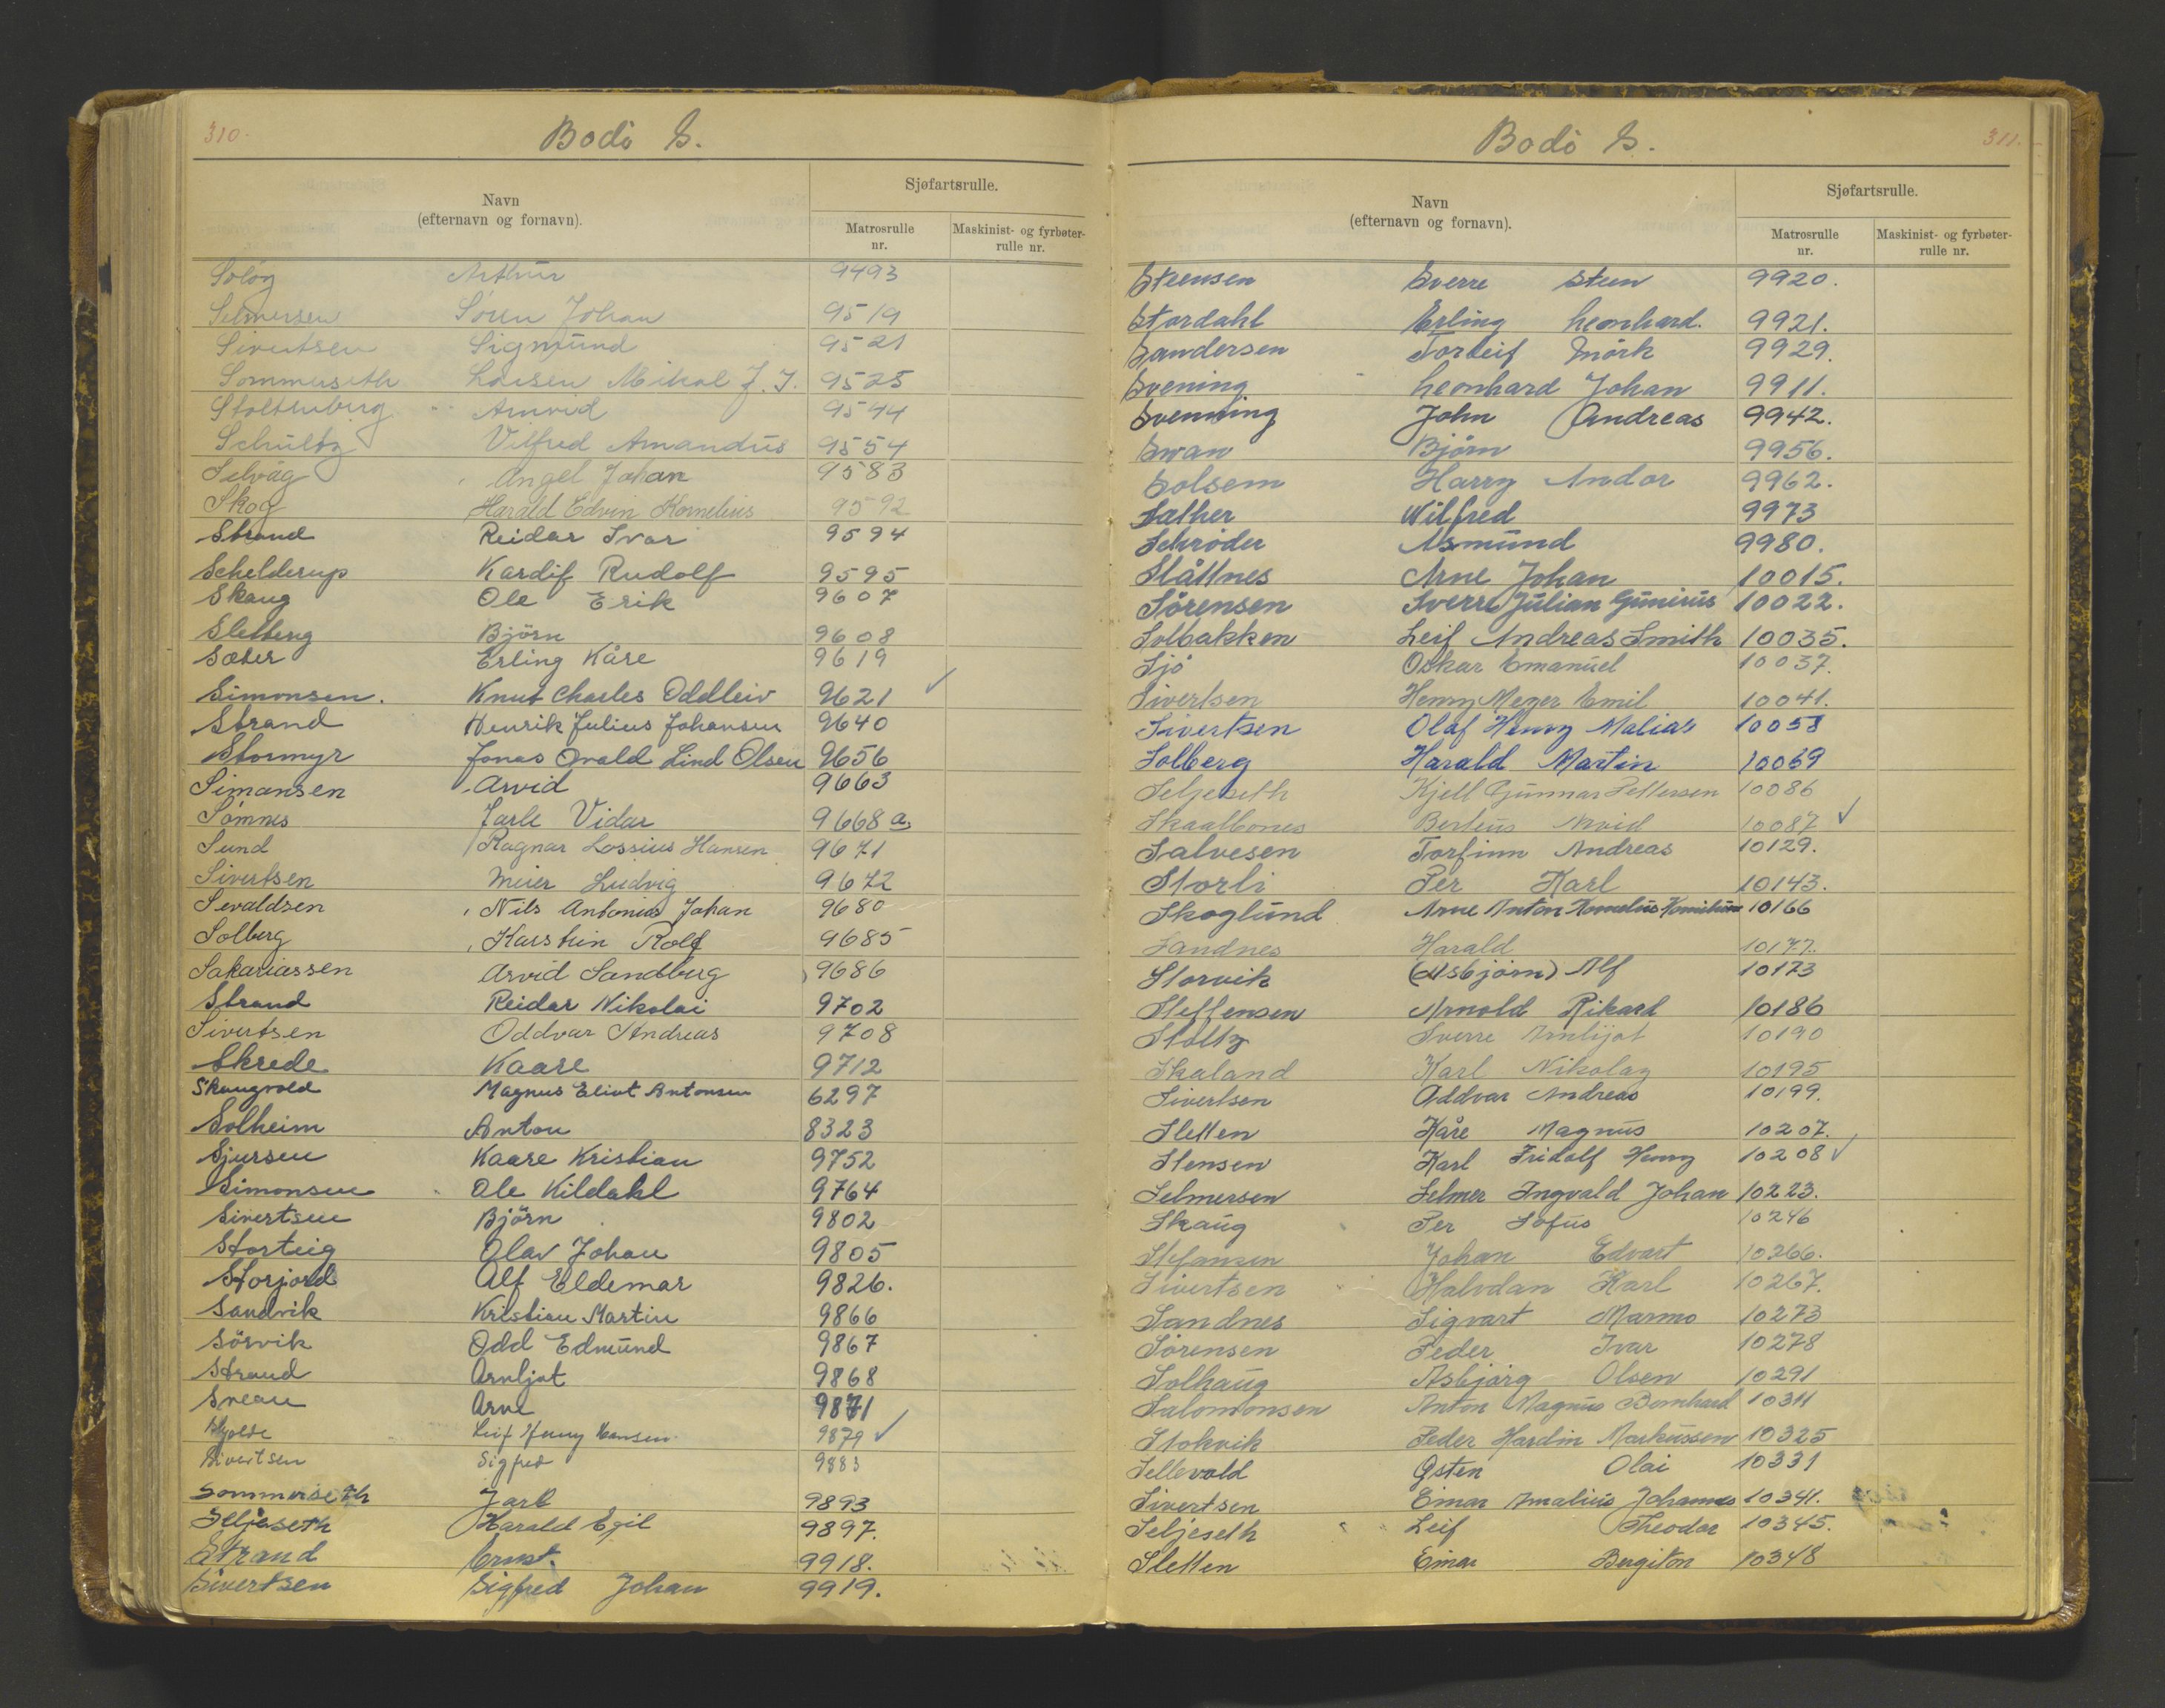 310.
Bodö S.
Navn
(efternavn og fornavn).
Sjøfartsrulle.
Matrosrulle
nr.
Maskinist- og fyrbøter-
rulle nr.
Solöy Arthur 9493
Selmersen Sören Johan 9519
Sivertsen Sigmund 9521
Sommerseth Larsen Mikal J. J. 9525
Stoltenberg Arnvid 9544
Schultz Vilfred Amandus 9554
Selvåg Angel Johan 9583
Skog Harald Edvin Kornelius 9592
Strand Reidar Ivar 9594
Schelderup Kardif Rudolf 9595
Skaug Ole Erik 9607
Sletteng Björn 9608
Sæter Erling Kåre 9619
Simonsen. Knut Charles Oddleiv 9621 ✓
Strand Henrik Julius Johansen 9640
Stormyr Jonas Ovald Lind Olsen 9656
Simansen Arvid 9663
Sömnes Jarle Vidar 9668 a
Sund Ragnar Lossius Hansen 9671
Sivertsen Meier Ludvig 9672
Sevaldsen Nils Antonius Johan 9680
Solberg Karstein Rolf 9685
Sakariassen Arvid Sandberg 9686
Strand Reidar Nikolai 9702
Sivertsen Oddvar Andreas 9708
Skrede Kaare 9712
Skaugvold Magnus Eliot Antonsen 6297
Solheim Anton 8323
Sjursen Kaare Kristian 9752
Simonsen Ole Kildahl 9764
Sivertsen Björn 9802
Storteig Olav Johan 9805
Storjord Alf Eldemar 9826.
Sandvik Kristian Martin 9866
Sörvik Odd Edmund 9867
Strand Arnljot 9868
Svean Arne 9871
Leif Henny Hansen 9879 ✓
Sivertsen Sigfred 9883
Sommerseth Jarl 9893
Seljeseth Harald Egil 9897.
Strand Ernst. 9918.
Sivertsen Sigfred Johan 9919.
Bodö S.
311.
Navn
(efternavn og fornavn).
Sjøfartsrulle.
Matrosrulle
nr.
Maskinist- og fyrbøter-
rulle nr.
Steensen Sverre Steen 9920.
Stordahl Erling Leonhard. 9921.
Sandersen Torleif Mörk 9929.
Svening Leonhard Johan 9911.
Svenning John Andreas 9942.
Swan Björn 9956.
Solsem Harry Andor 9962.
Sæther Wilfred 9973
Schröder Asmund 9980.
Slåttnes Arne Johan 10015.
Sörensen Sverre Julian Gunerius 10022.
Solbakken Leif Andreas Smith 10035.
Sjö Oskar Emanuel 10037.
Sivertsen Henry Meyer Emil 10041.
Sivertsen Olaf Henry Malias 10058
Solberg Harald Martin 10069
Seljeseth Kjell Gunnar Pettersen 10086
Skaalbones Berteus Arvid 10087 ✓
Salvesen Torfinn Andreas 10129.
Storli Per Karl 10143.
Skoglund Arne Anton Kornelius 10166
Sandnes Harald 10177.
Storvik (Asbjörn) Alf 10173
Steffensen Arnold Rikard 10186
Stoltz Sverre Arnljot 10190
Skaland Karl Nikolay 10195
Sivertsen Oddvar Andreas 10199.
Sletten Kåre Magnus 10207.
Stensen Karl Fridolf Henry 10208 ✓
Selmersen Selmer Ingvald Johan 10223.
Skaug Per Sofus 10246
Stefansen Johan Edvart 10266.
Sivertsen Halvdan Karl 10267.
Sandnes Sigvart Marmo 10273
Sörensen Peder Ivar 10278
Solhaug Asbjörg Olsen 10291
Salomonsen Anton Magnus Bernhard 10311
Stokvik Peder Hardin Markussen 10325
Sellevold Östen Olai 10331
Sivertsen Einar Amalius Johannes 10341.
Seljeseth Leif Theodor 10345.
Sletten Einar Bergiton 10348